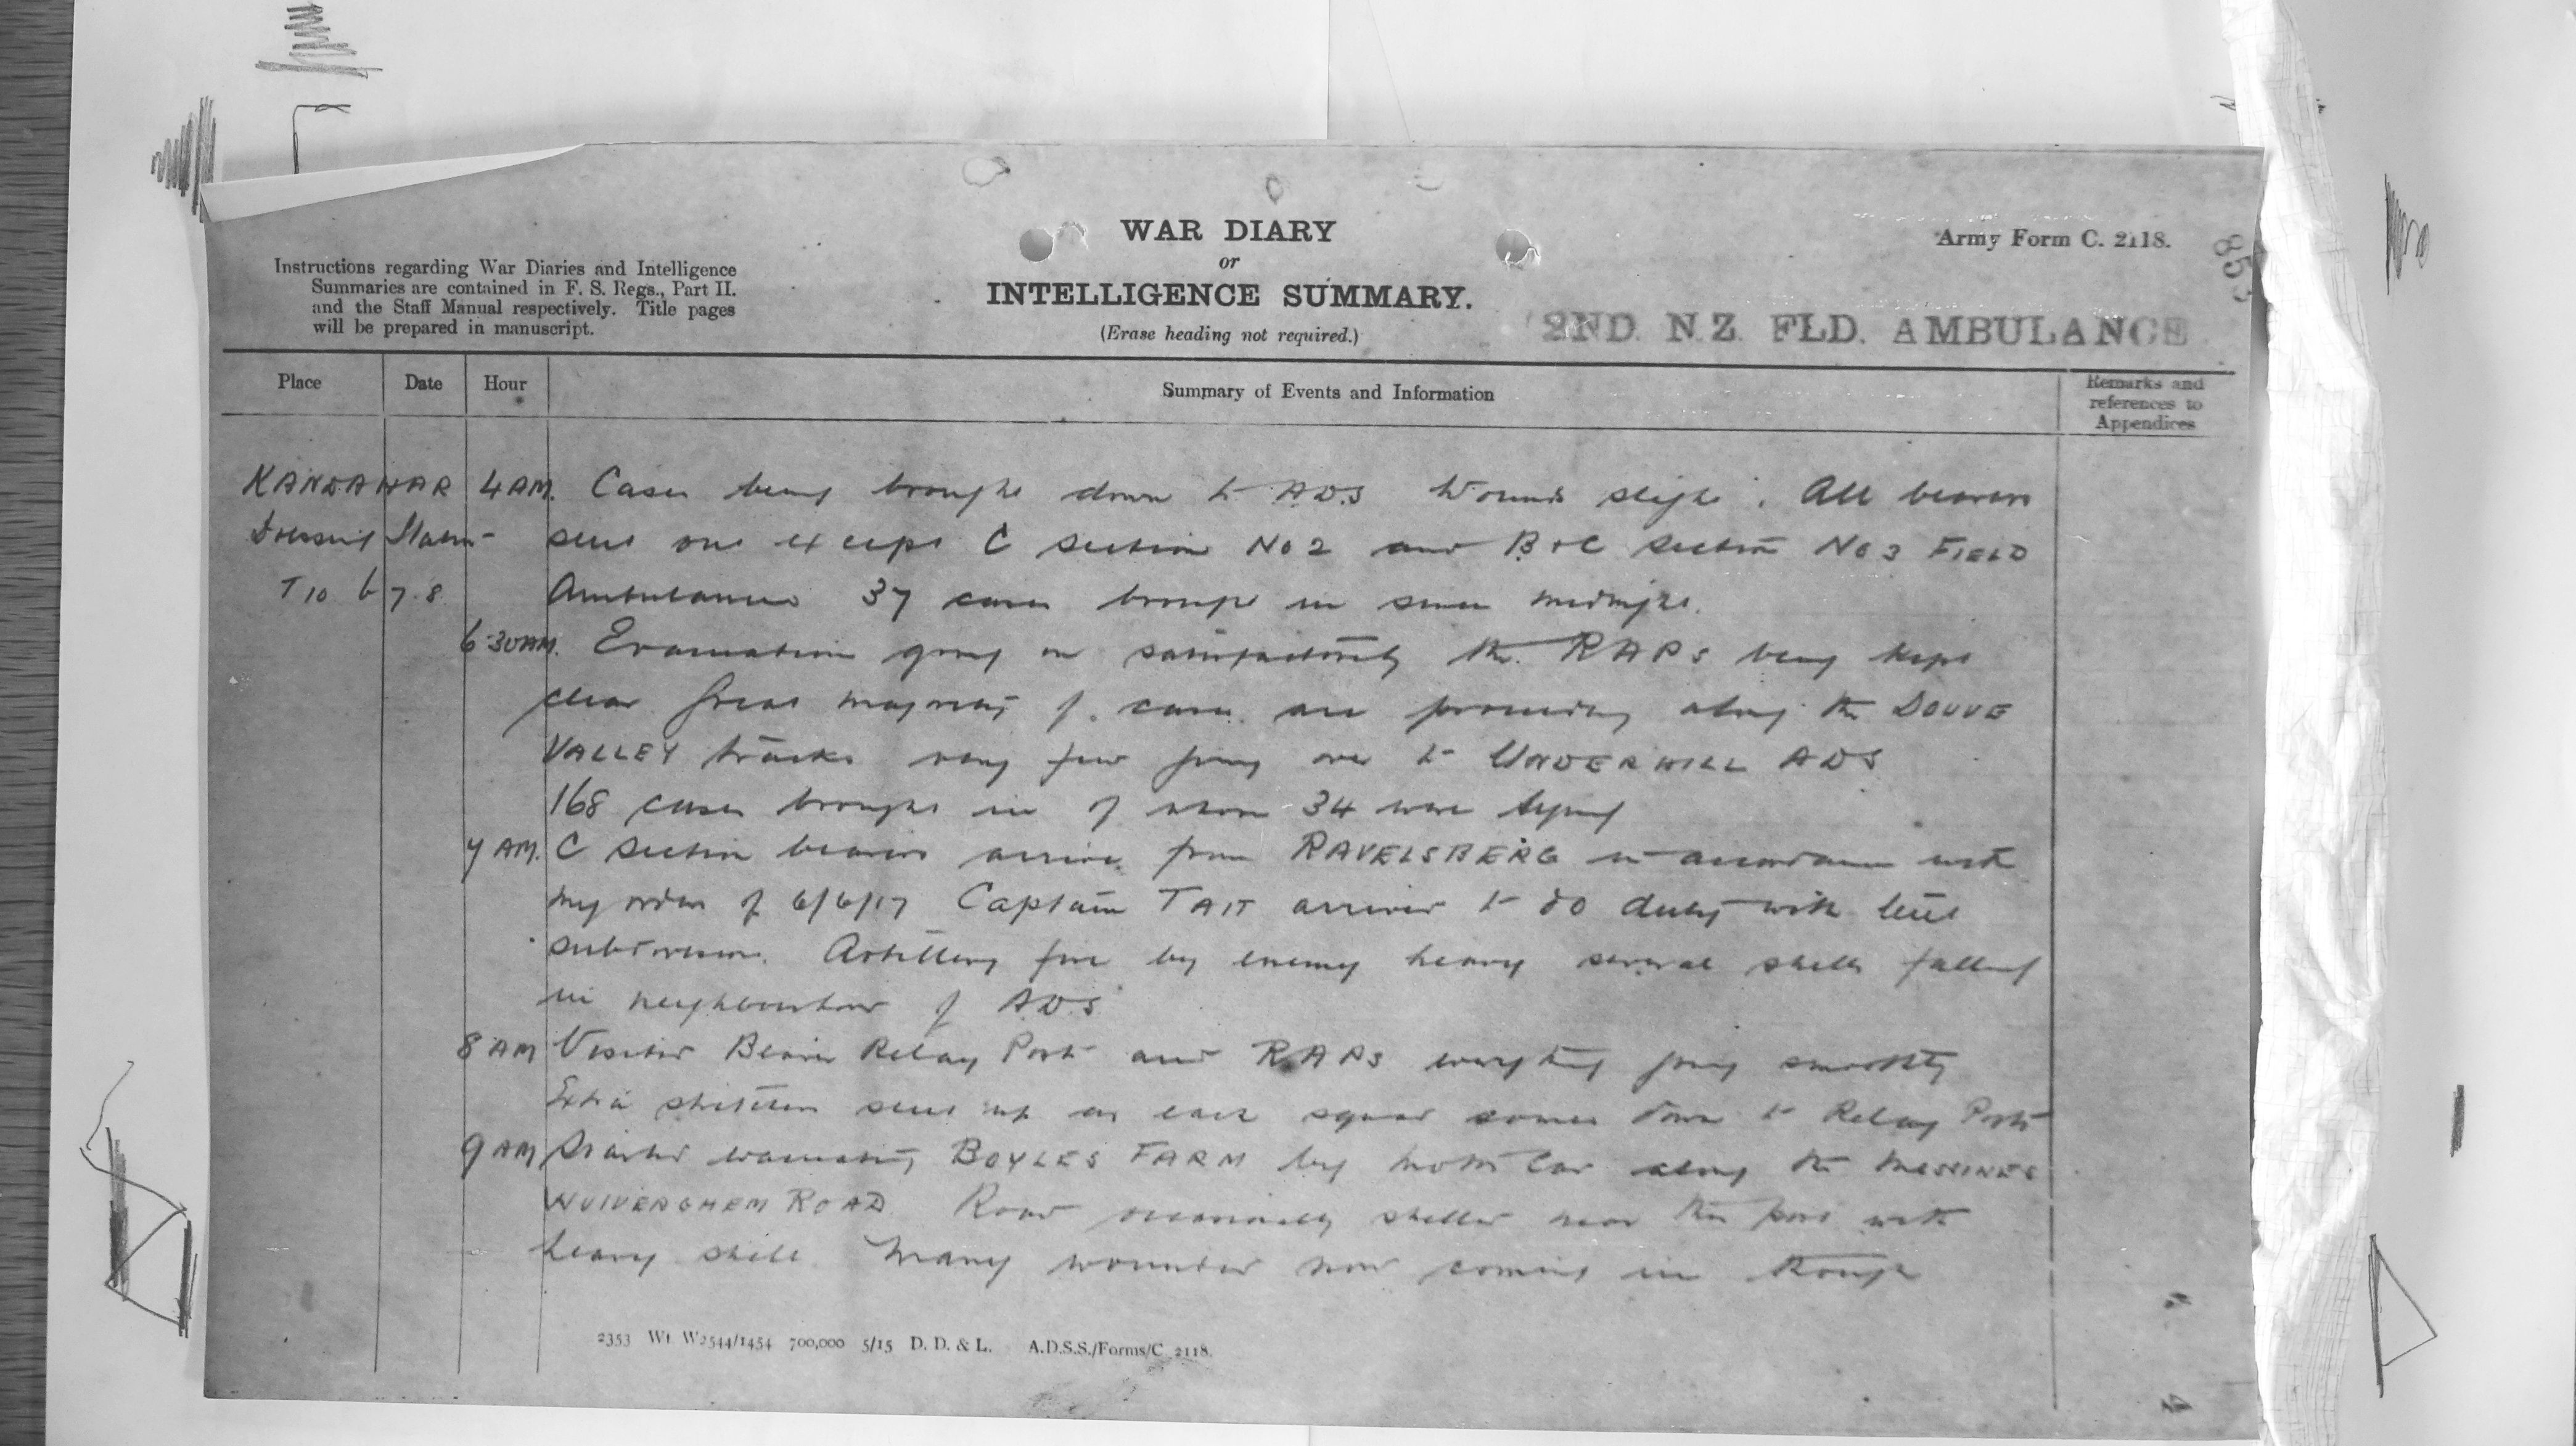 WAR DIARY
or
INTELLIGENCE SUMMARY.
(Erase heading not required.)
Army Form C. 2118.
Instructions regarding War Diaries and Intelligence
Summaries are contained in F. S. Regs., Part II.
and the Staff Manual respectively. Title pages
will be prepared in manuscript.
2ND. N.Z. FLD. AMBULANCE
Place Date Hour Summary of Events and Information Remarks and
references to
Appendices
KANDAHAR 4 AM. Cases being brought down to A.D.S Wounds slight. All bearers
Dressing Station sent out except C Section No 2 and B & C Section No 3 FIELD
T 10 b 7.8 Ambulances 37 cases brought in since midnight.
6.30 AM. Evacuation going on satisfactorily the RAPs being kept
clear Great majority of cases are proceeding along the DOUVE
VALLEY tracks very few going over to UNDERHILL ADS
168 cases brought in of whom 34 were lying
7 AM. C Section bearers arrive from RAVELSBERG in accordance with
my orders of 6/6/17 Captain TAIT arrived to do duty with tent
subdivision. Artillery fire by enemy heavy several shells falling
in neighbourhood of A.D.S
8 AM Visited Bearer Relay Post and RAPs everything going smoothly
Extra stretchers sent up as each squad comes down to Relay Post
9 AM Started evacuating BOYLES FARM by motor car along the MESSINES
WULVERGHEM ROAD. Road occasionally shelled near this post with
heavy shell Many wounded now coming in though
2353 Wt. W2544/1454 700,000 5/15 D. D. & L. A.D.S.S./Forms/C. 2118.